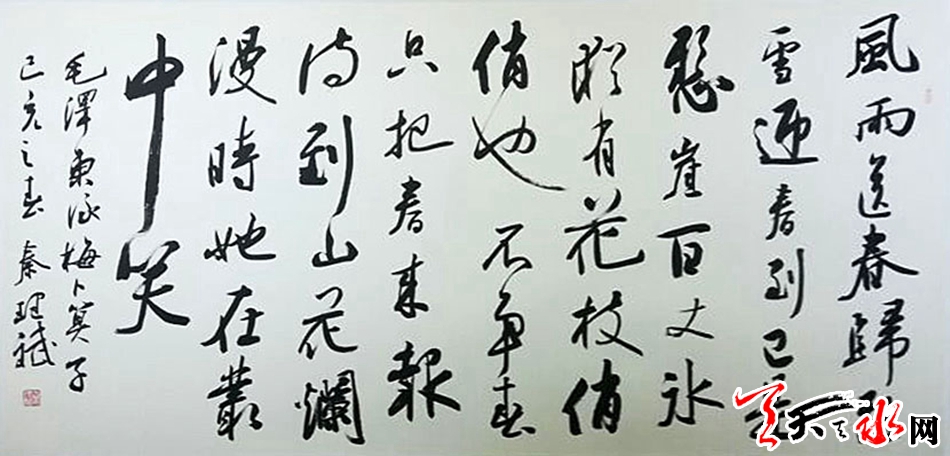 風雨送春歸
雪迎春到已是
懸崖百丈冰
猶有花枝俏
俏也不爭春
只把春來報
待到山花爛
漫時她在叢
中笑
毛澤東詠梅卜算子
己亥之春 秦理
天水网